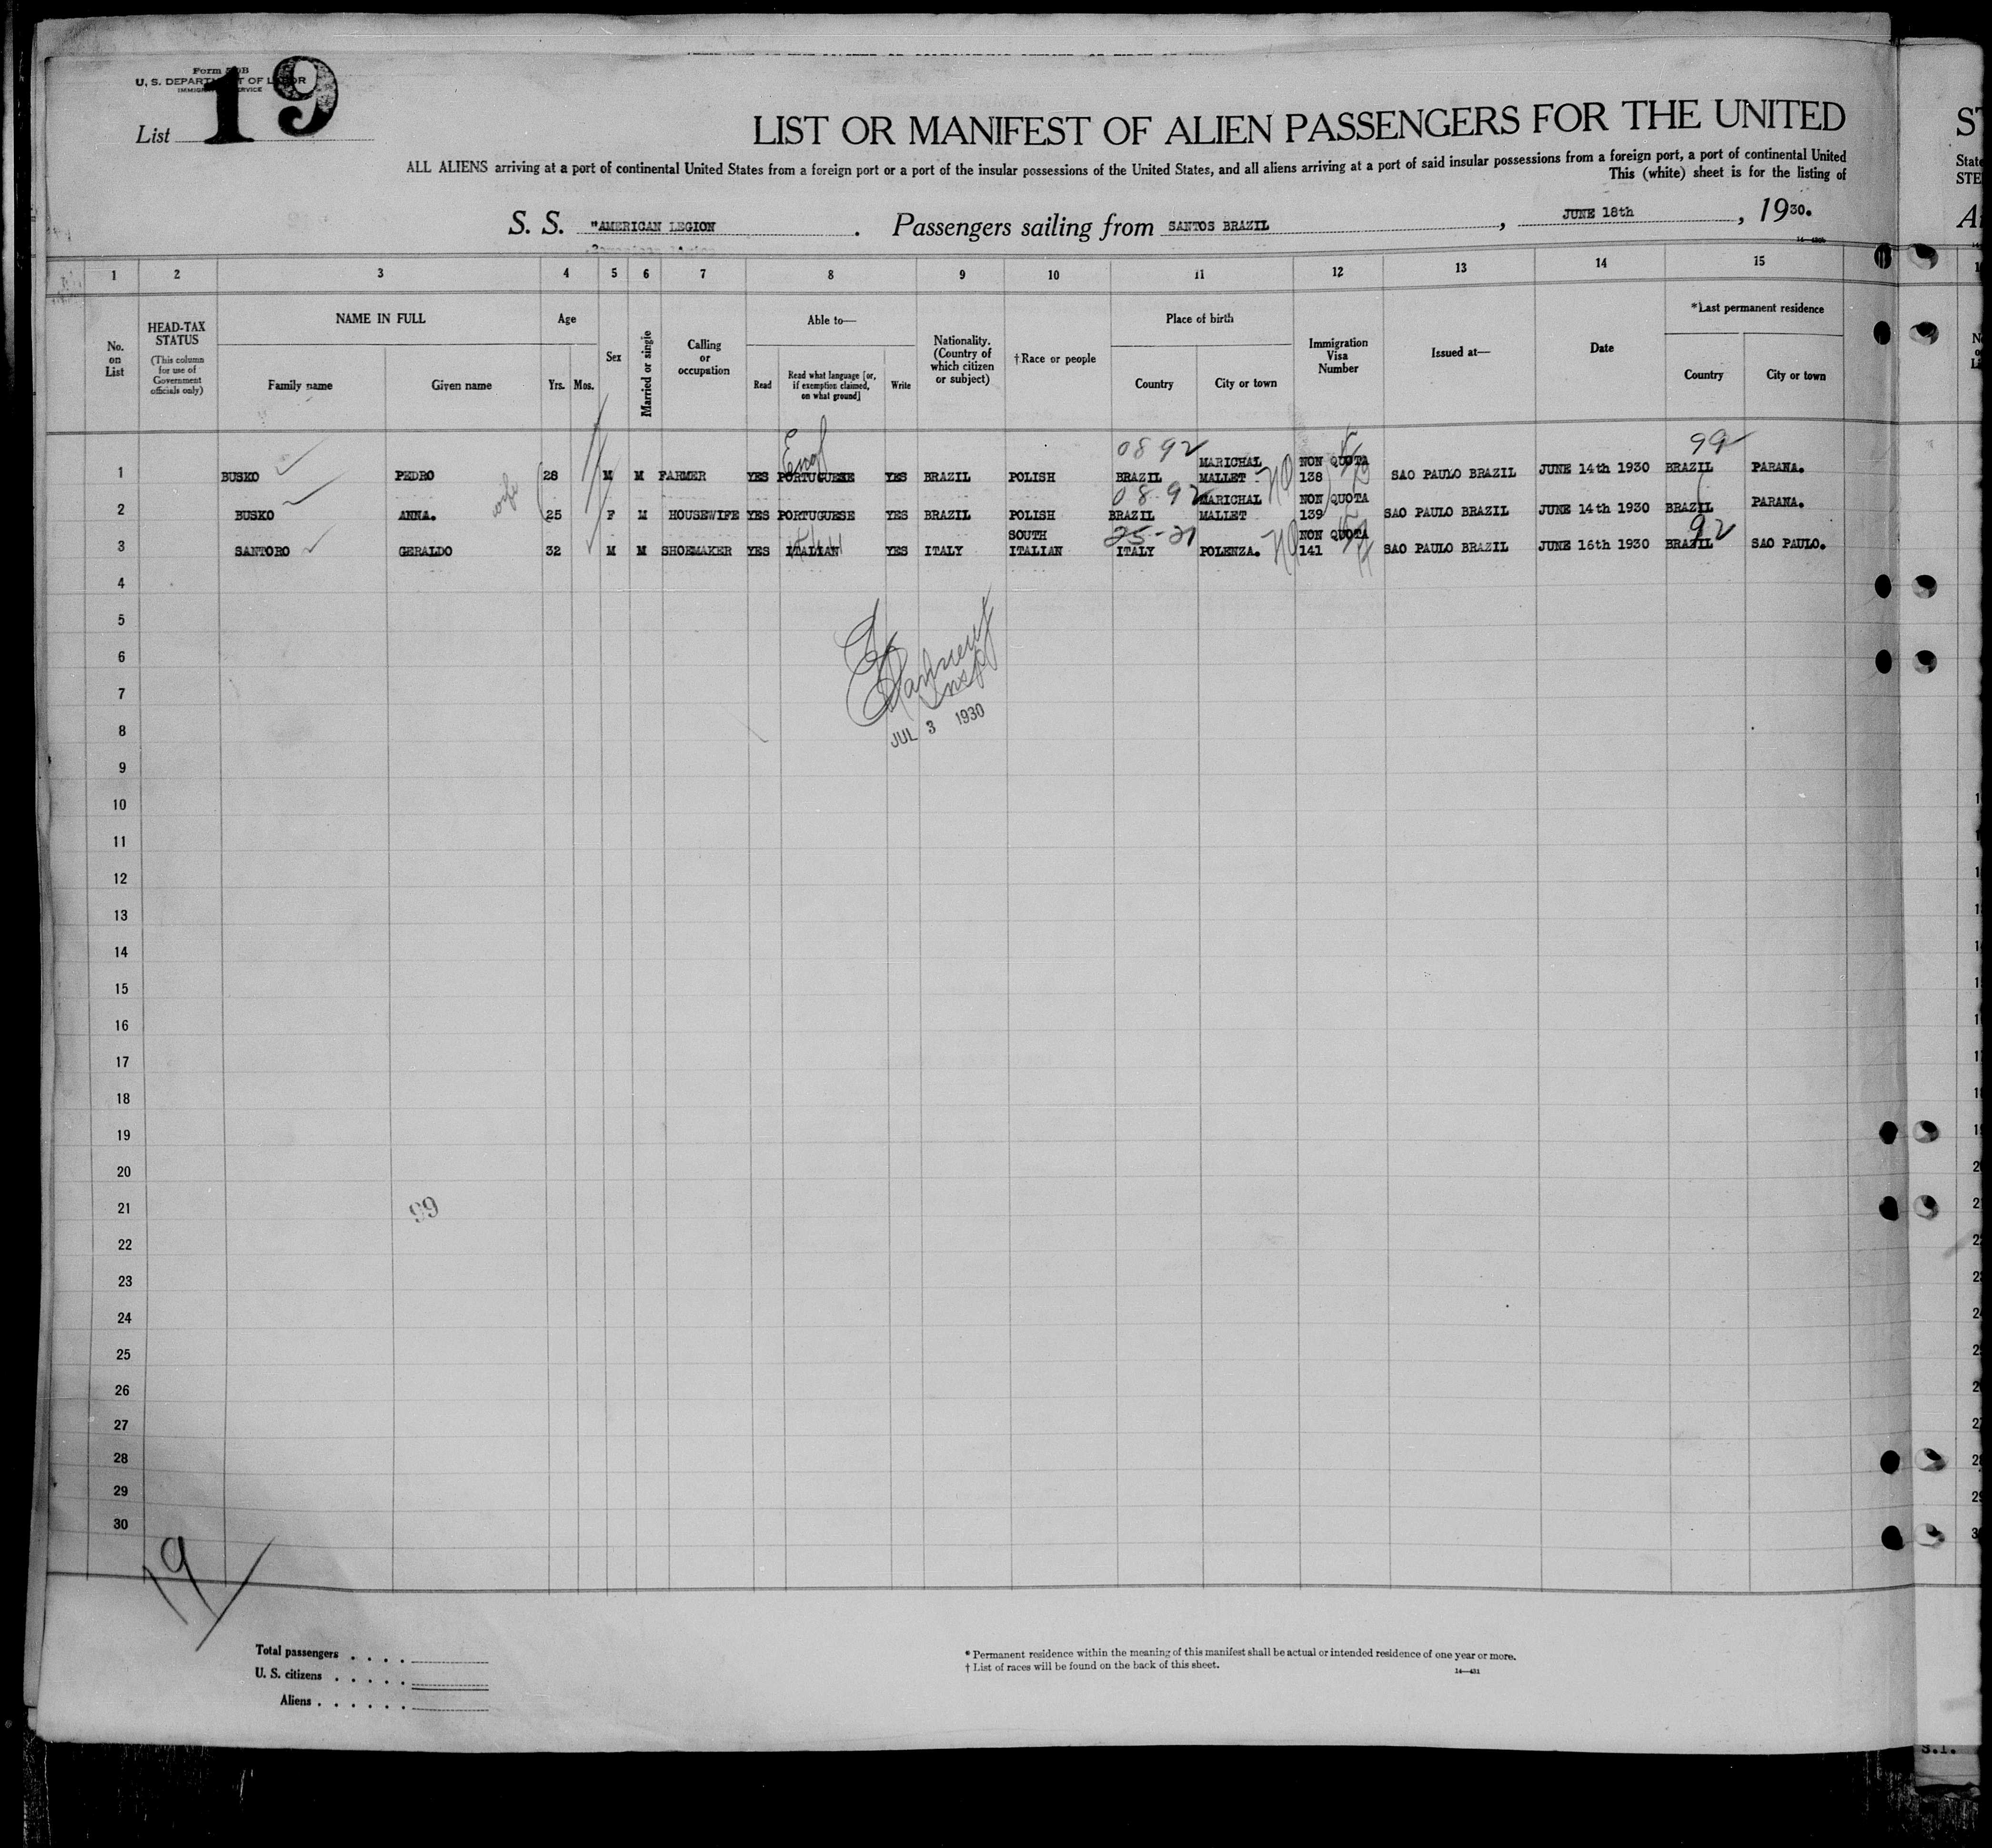 Form 500B
U. S. DEPARTMENT OF LABOR
IMMIGRATION SERVICE
List 19
LIST OR MANIFEST OF ALIEN PASSENGERS FOR THE UNITED
ALL ALIENS arriving at a port of continental United States from a foreign port or a port of the insular possessions of the United States, and all aliens arriving at a port of said insular possessions from a foreign port, a port of continental United
This (white) sheet is for the listing of
S. S. "AMERICAN LEGION . Passengers sailing from SANTOS BRAZIL , JUNE 18th , 1930.
1 2 3 4 5 6 7 8 9 10 11 12 13 14 15
No. on List
HEAD-TAX STATUS
(This column for use of Government officials only)
NAME IN FULL
Family name
Given name
Age
Yrs.
Mos.
Sex
Married or single
Calling or occupation
Able to—
Read
Read what language [or, if exemption claimed, on what ground]
Write
Nationality. (Country of which citizen or subject)
†Race or people
Place of birth
Country
City or town
Immigration Visa Number
Issued at—
Date
*Last permanent residence
Country
City or town
Engl
08 92
99
MARICHAL NON QUOTA
1 BUSKO PEDRO 28 M M FARMER YES PORTUGUESE YES BRAZIL POLISH BRAZIL MALLET 138 SAO PAULO BRAZIL JUNE 14th 1930 BRAZIL PARANA.
wife
08-92 MARICHAL NON QUOTA
2 BUSKO ANNA. 25 F M HOUSEWIFE YES PORTUGUESE YES BRAZIL POLISH BRAZIL MALLET 139 SAO PAULO BRAZIL JUNE 14th 1930 BRAZIL PARANA.
SOUTH 25-21 NON QUOTA 92
3 SANTORO GERALDO 32 M M SHOEMAKER YES ITALIAN YES ITALY ITALIAN ITALY POLENZA. 141 SAO PAULO BRAZIL JUNE 16th 1930 BRAZIL SAO PAULO.
4
5
6
Insp
7
JUL 3 1930
8
9
10
11
12
13
14
15
16
17
18
19
20
21
99
22
23
24
25
26
27
28
29
30
19
Total passengers
U. S. citizens
Aliens
* Permanent residence within the meaning of this manifest shall be actual or intended residence of one year or more.
† List of races will be found on the back of this sheet.
14—431
S.I.